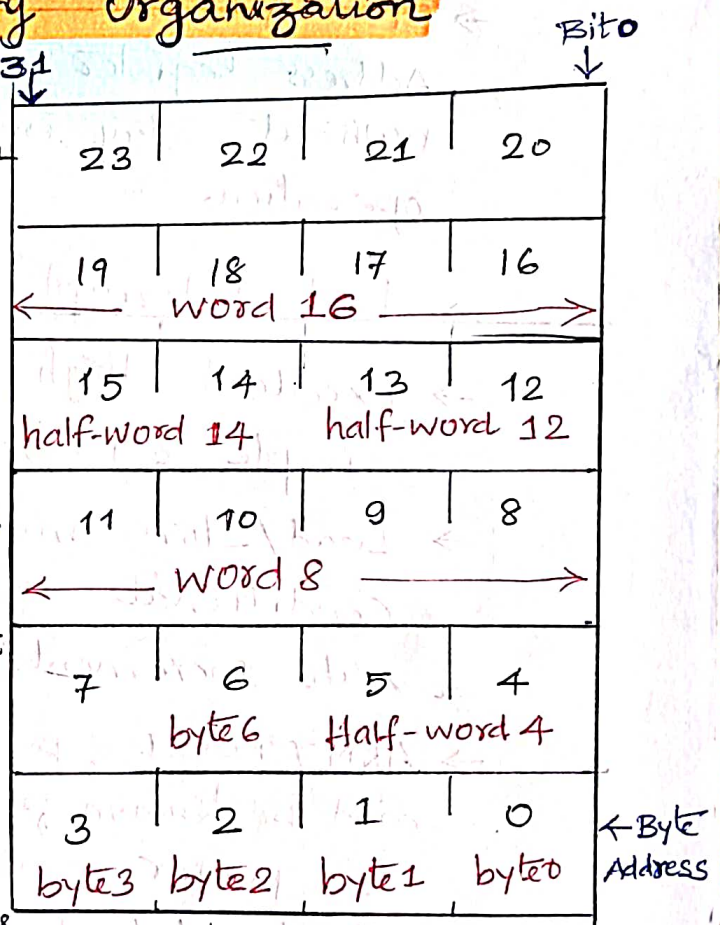 y Organization
31 Bit0
23 22 21 20
19 18 17 16
word 16
15 14 13 12
half-word 14 half-word 12
11 10 9 8
word 8
7 6 5 4
byte6 Half-word 4
3 2 1 0 ←Byte
byte3 byte2 byte1 byte0 Address